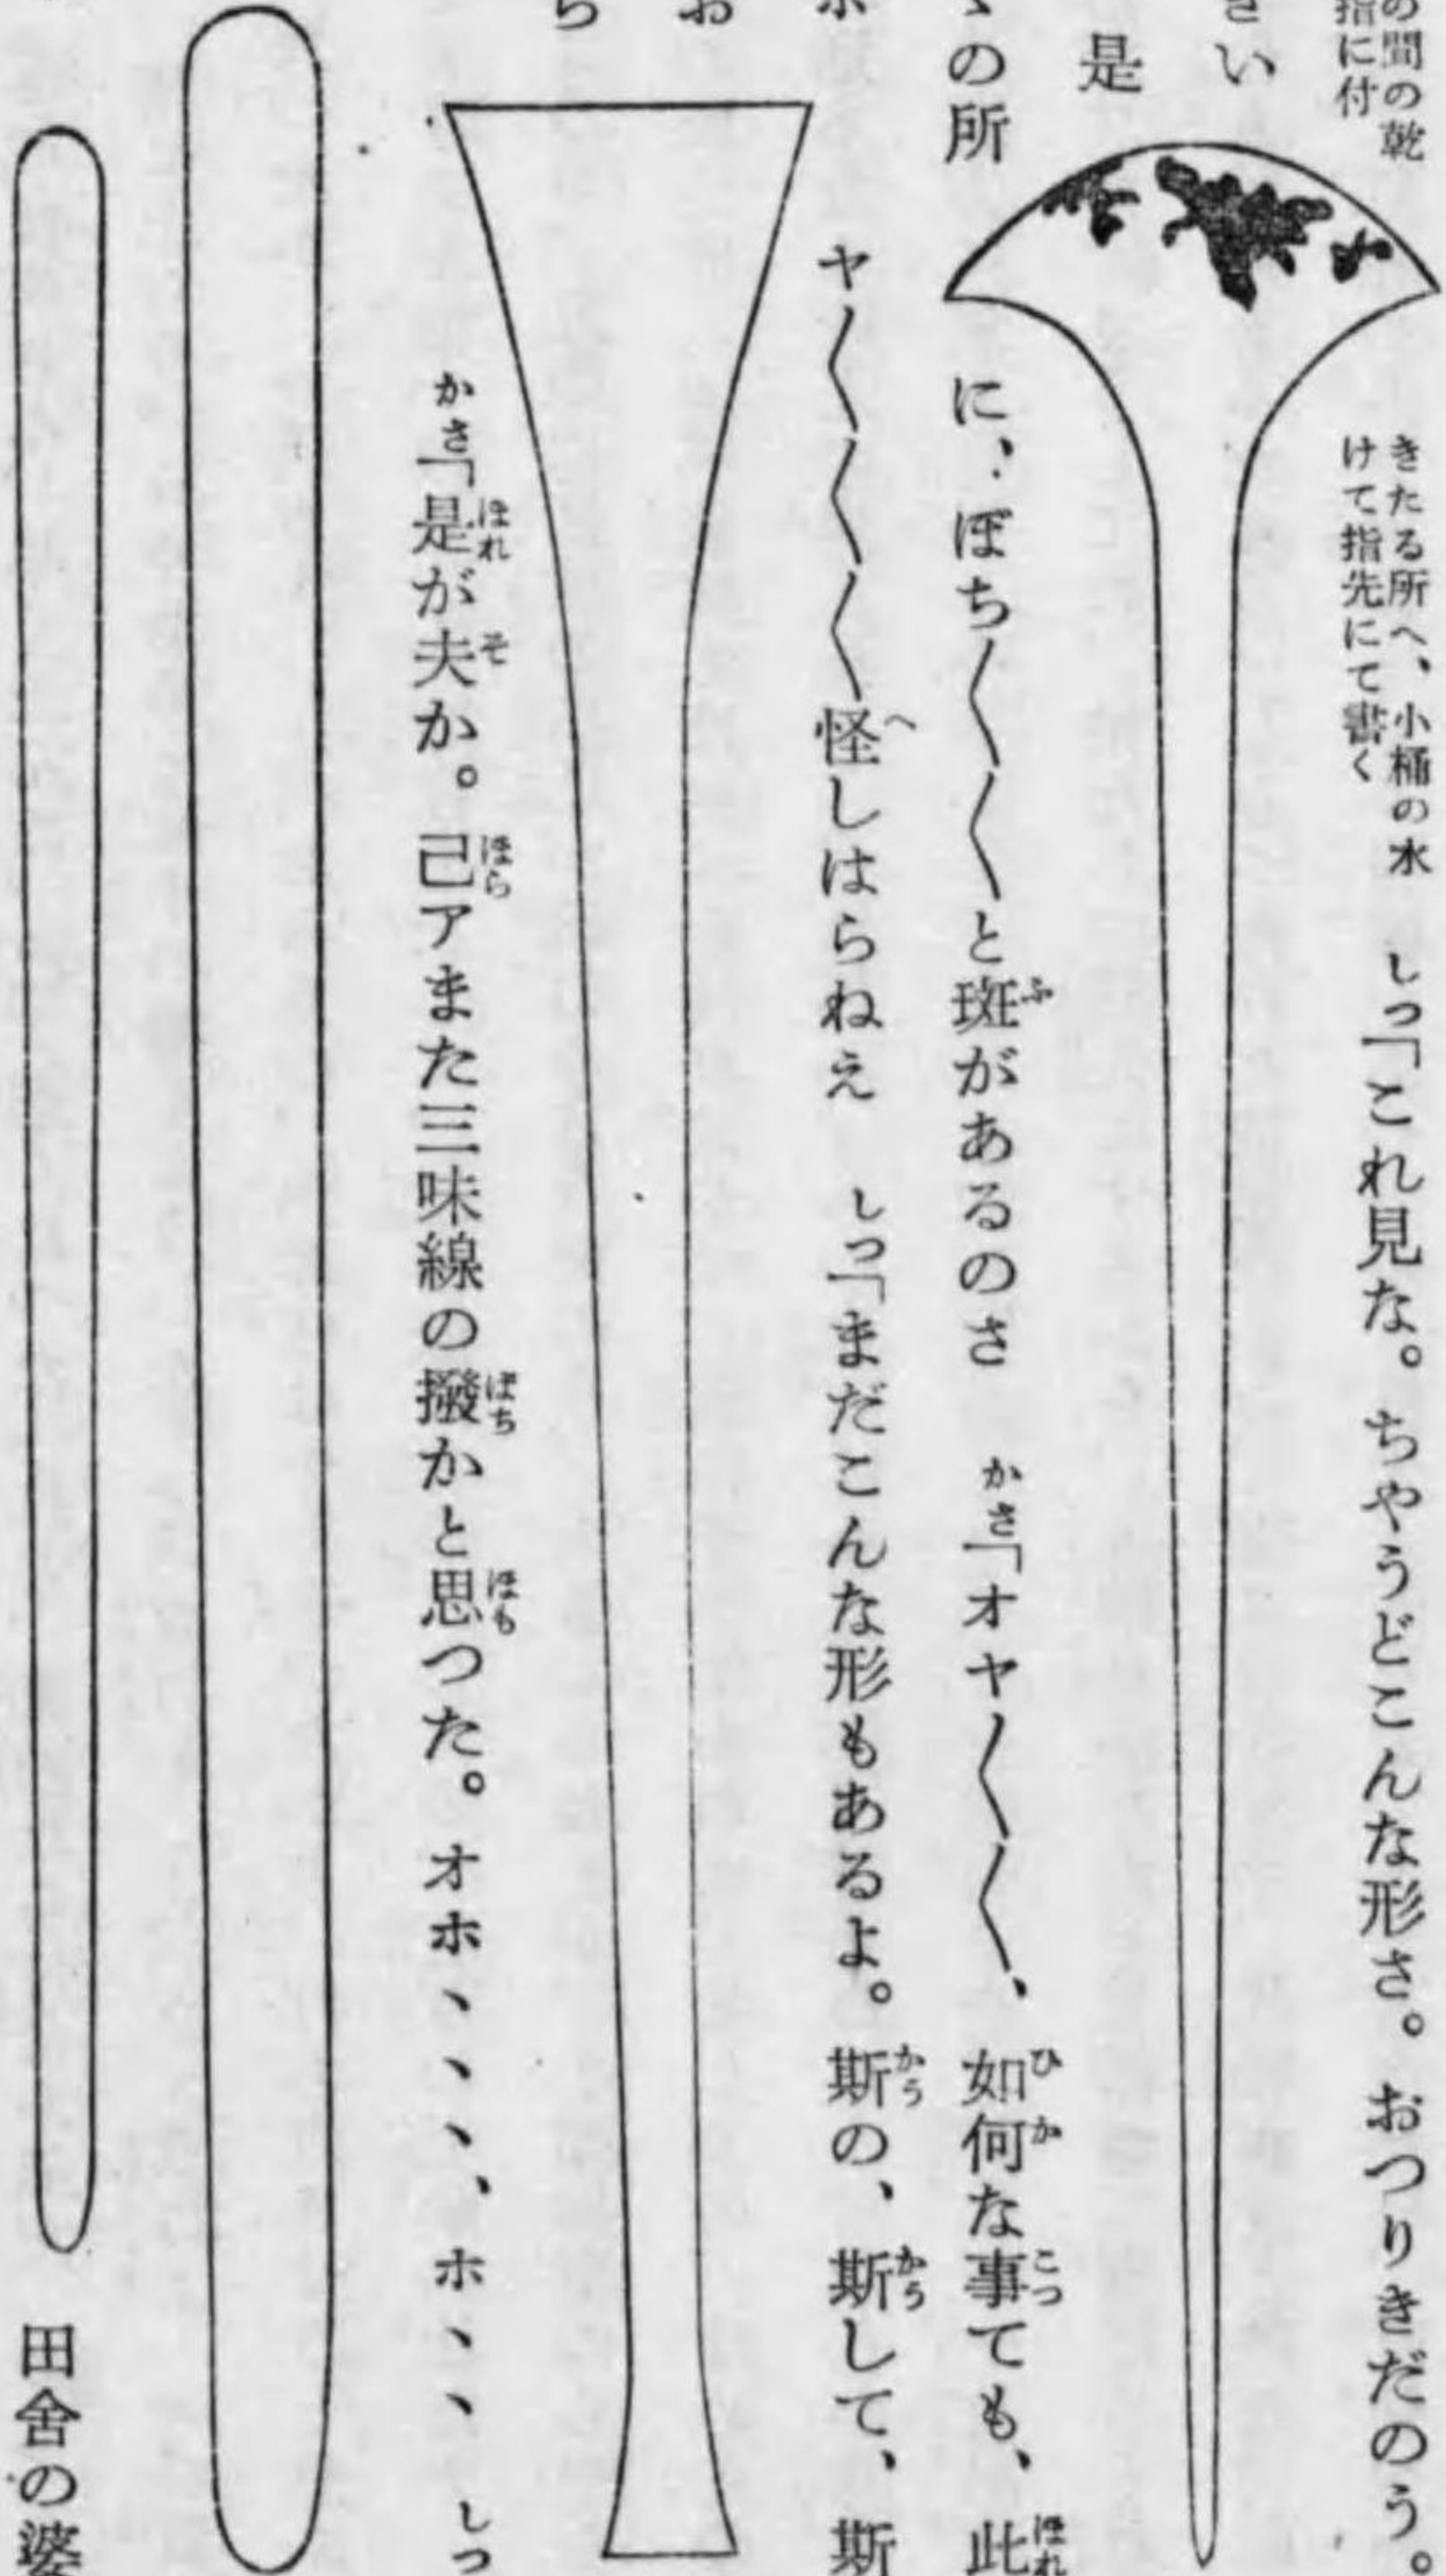 の間の乾きたる所へ、小桶の水
指に付けて指先にて書く
しつ「これ見な。ちやうどこんな形さ。おつりきだのう。
い
是
の所に、ぽち〱〱と斑があるのさ　かさ「オヤ〱〱、如何な事ても、此
ヤ〱〱〱怪しはらねえ　しつ「まだこんな形もあるよ。斯の、斯して、斯
お
ら
かさ「是が夫か。己アまた三味線の撥かと思つた。オホヽヽヽ、ホヽヽ　しつ
田舎の婆